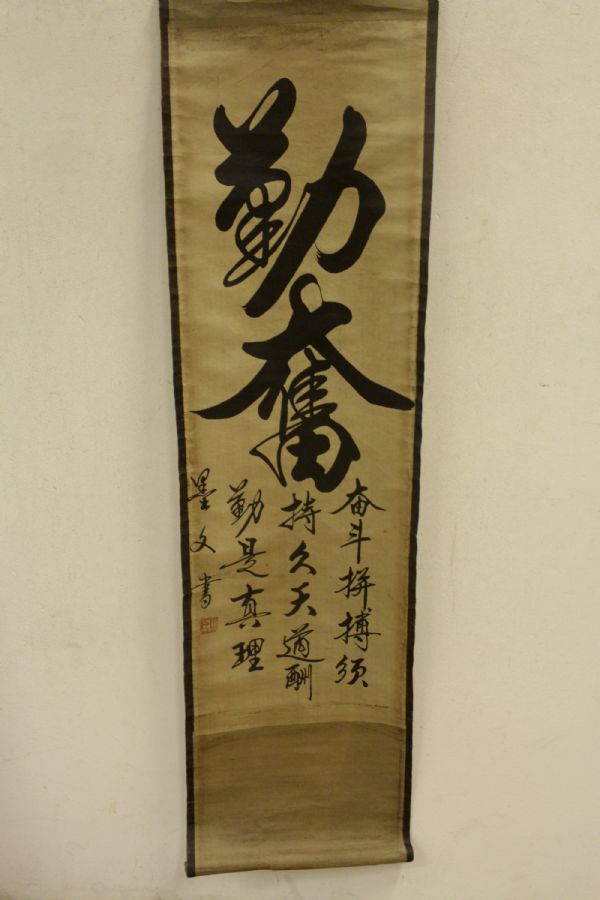 勤奮
奋斗拼搏须
持久天道酬
勤是真理
墨文書